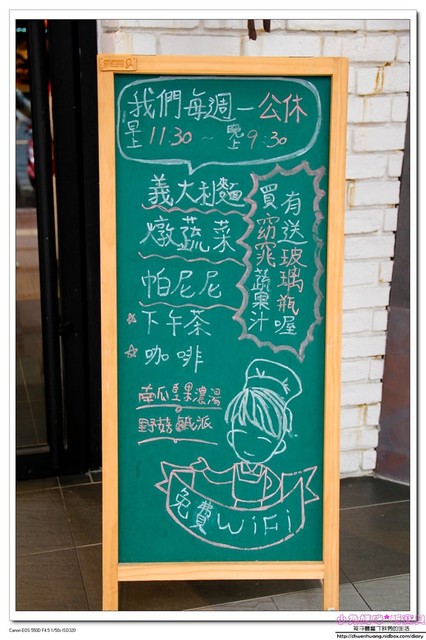 我們每週一公休
早上 11:30 ~ 晚上 9:30
義大利麵
燉蔬菜
帕尼尼
☆下午茶
☆咖啡
南瓜堅果濃湯
野菇鹹派
買窈窕蔬果汁
有送玻璃瓶喔
免費WiFi
Canon EOS 550D F4.5 1/50s ISO320
http://chwenhuang.nidbox.com/diary